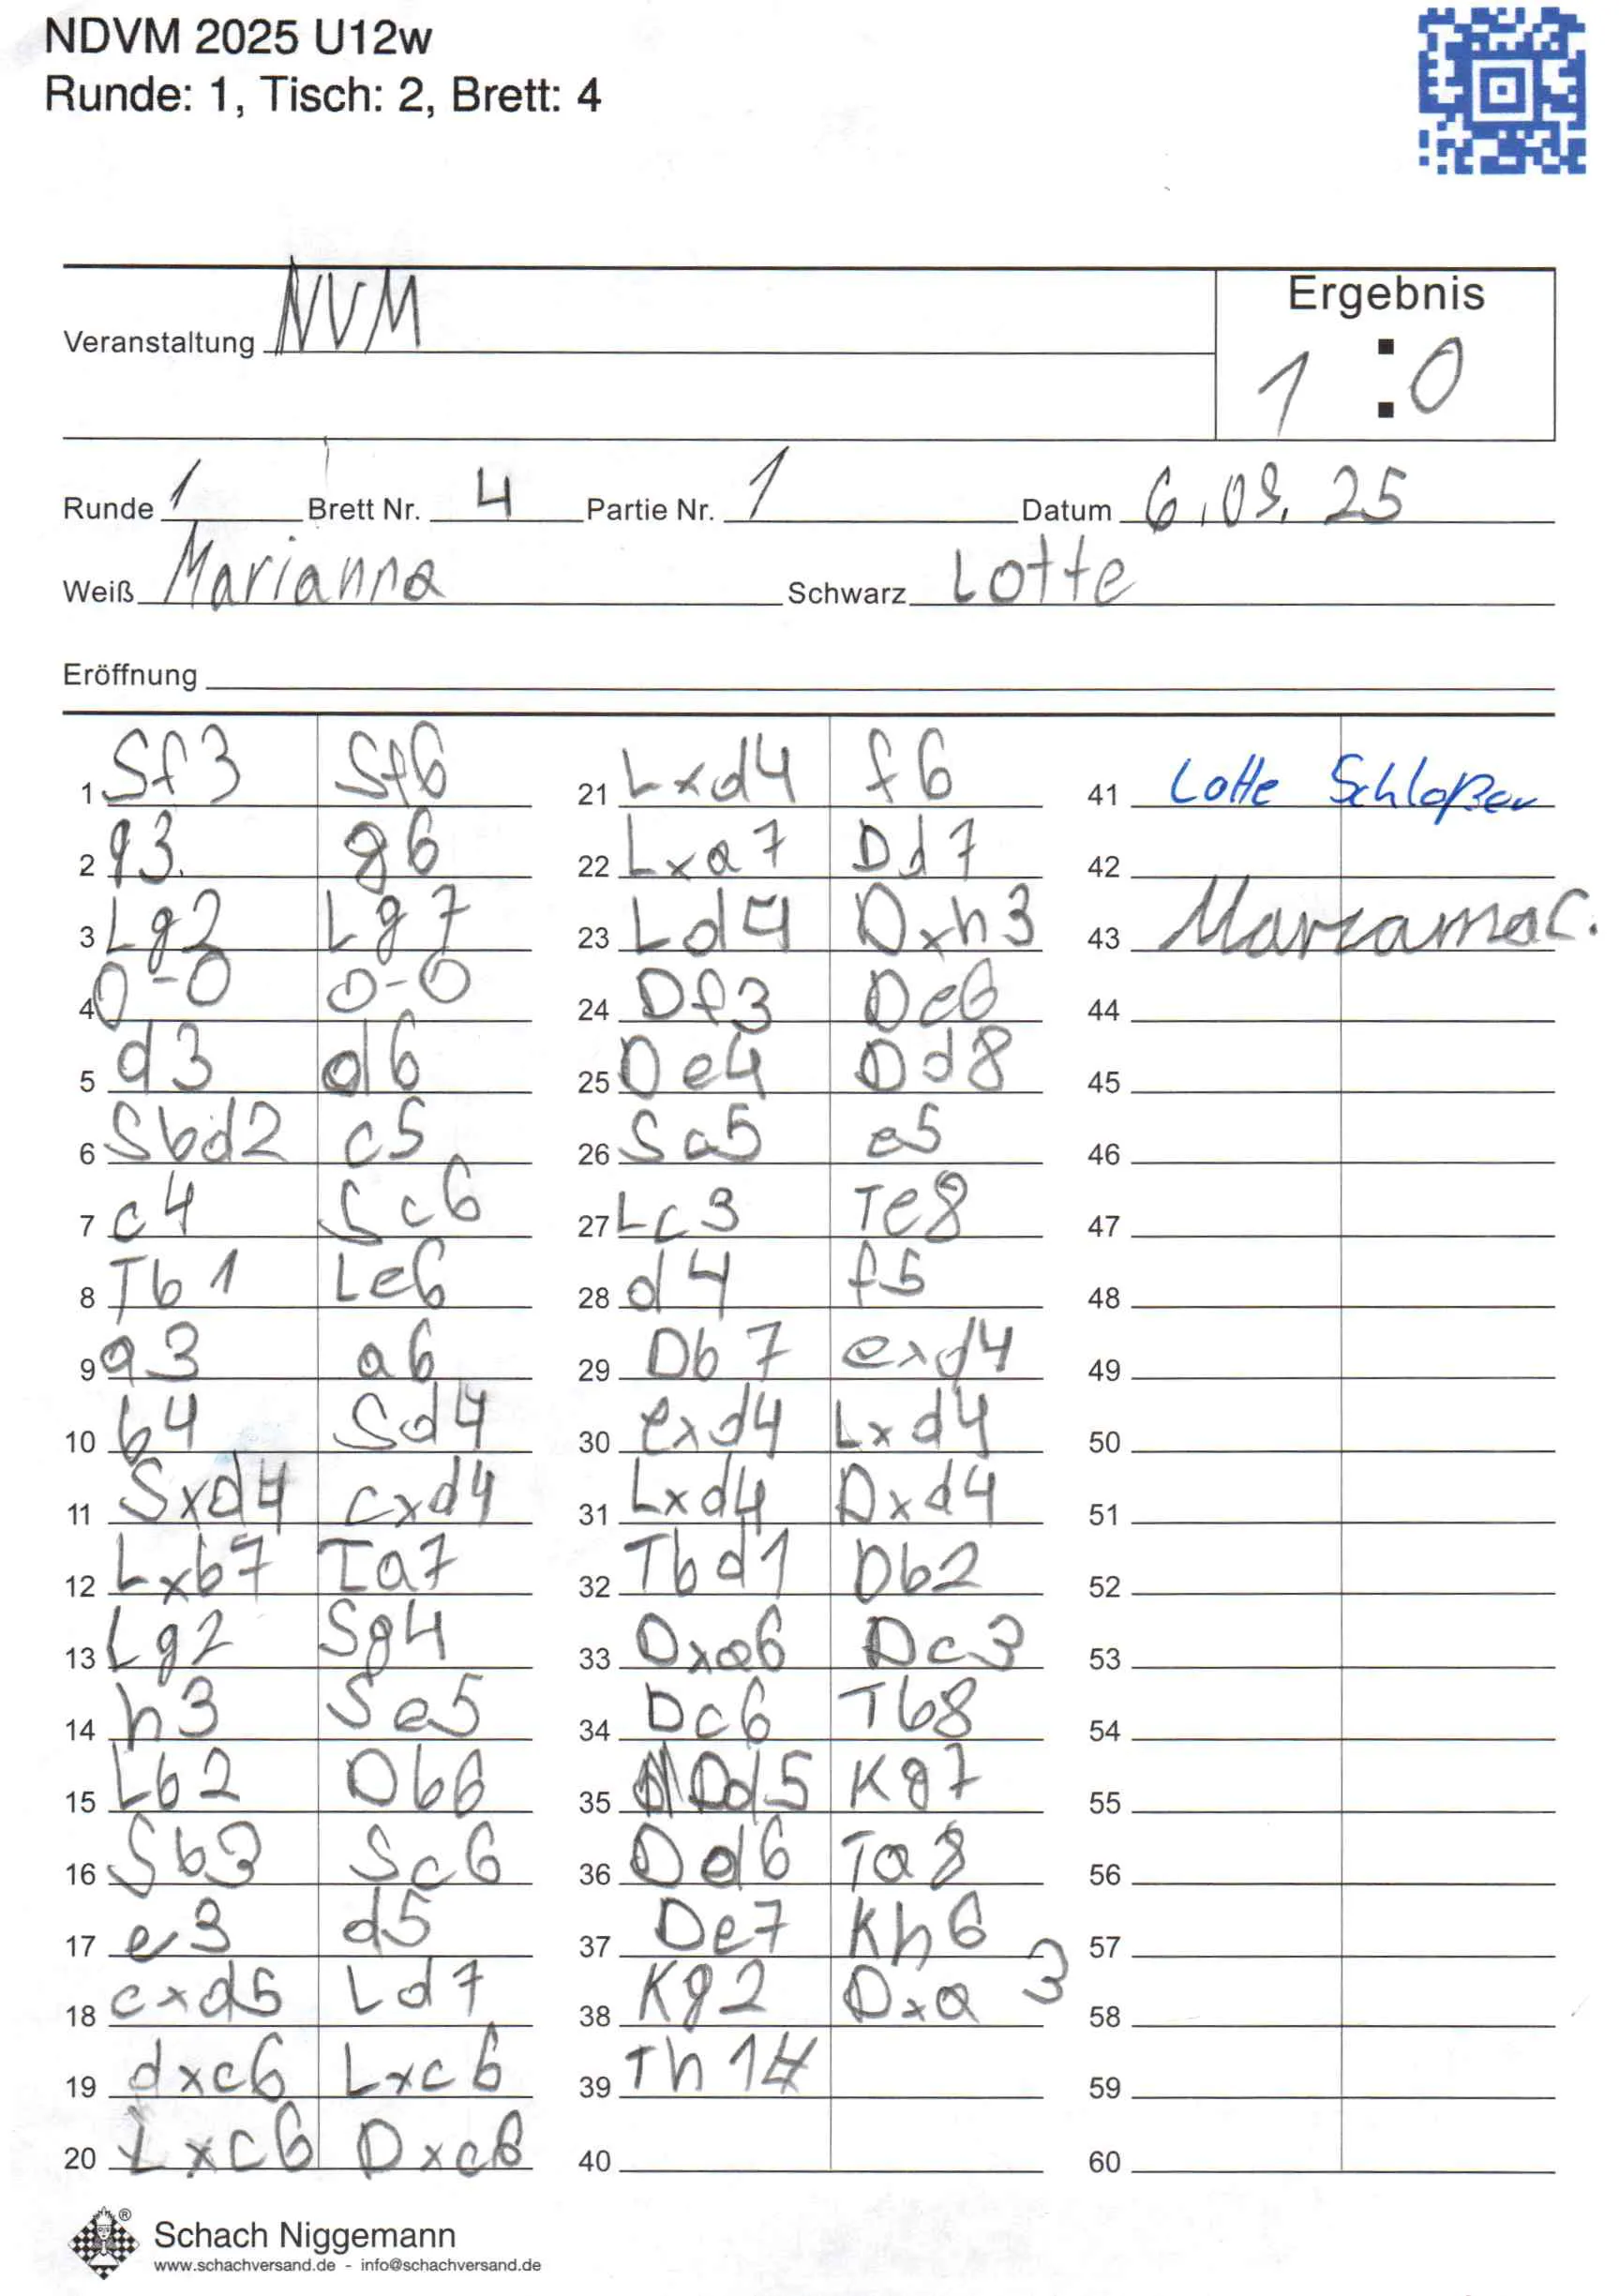 NDVM 2025 U12w
Runde: 1, Tisch: 2, Brett: 4
Ergebnis
Veranstaltung NVM
1 : 0
Runde 1 Brett Nr. 4 Partie Nr. 1 Datum 6.09.25
Weiß Marianna Schwarz Lotte
Eröffnung
1 Sf3 Sf6
2 g3. g6
3 Lg2 Lg7
4 0-0 0-0
5 d3 d6
6 Sbd2 c5
7 c4 Sc6
8 Tb1 Le6
9 a3 a6
10 b4 Sd4
11 Sxd4 cxd4
12 Lxb7 Ta7
13 Lg2 Sg4
14 h3 Se5
15 Lb2 Db6
16 Sb3 Sc6
17 e3 d5
18 cxd5 Ld7
19 dxc6 Lxc6
20 Lxc6 Dxc6
21 Lxd4 f6
22 Lxa7 Dd7
23 Ld4 Dxh3
24 Df3 De6
25 De4 Dd8
26 Sa5 e5
27 Lc3 Te8
28 d4 f5
29 Db7 exd4
30 exd4 Lxd4
31 Lxd4 Dxd4
32 Tbd1 Db2
33 Dxa6 Dc3
34 Dc6 Tb8
35 Dd5 Kg7
36 Dd6 Ta8
37 De7 Kh6
38 Kg2 Dxa3
39 Th1#
40
41 Lotte Schloßer
42
43
44
45
46
47
48
49
50
51
52
53
54
55
56
57
58
59
60
Schach Niggemann
www.schachversand.de - info@schachversand.de